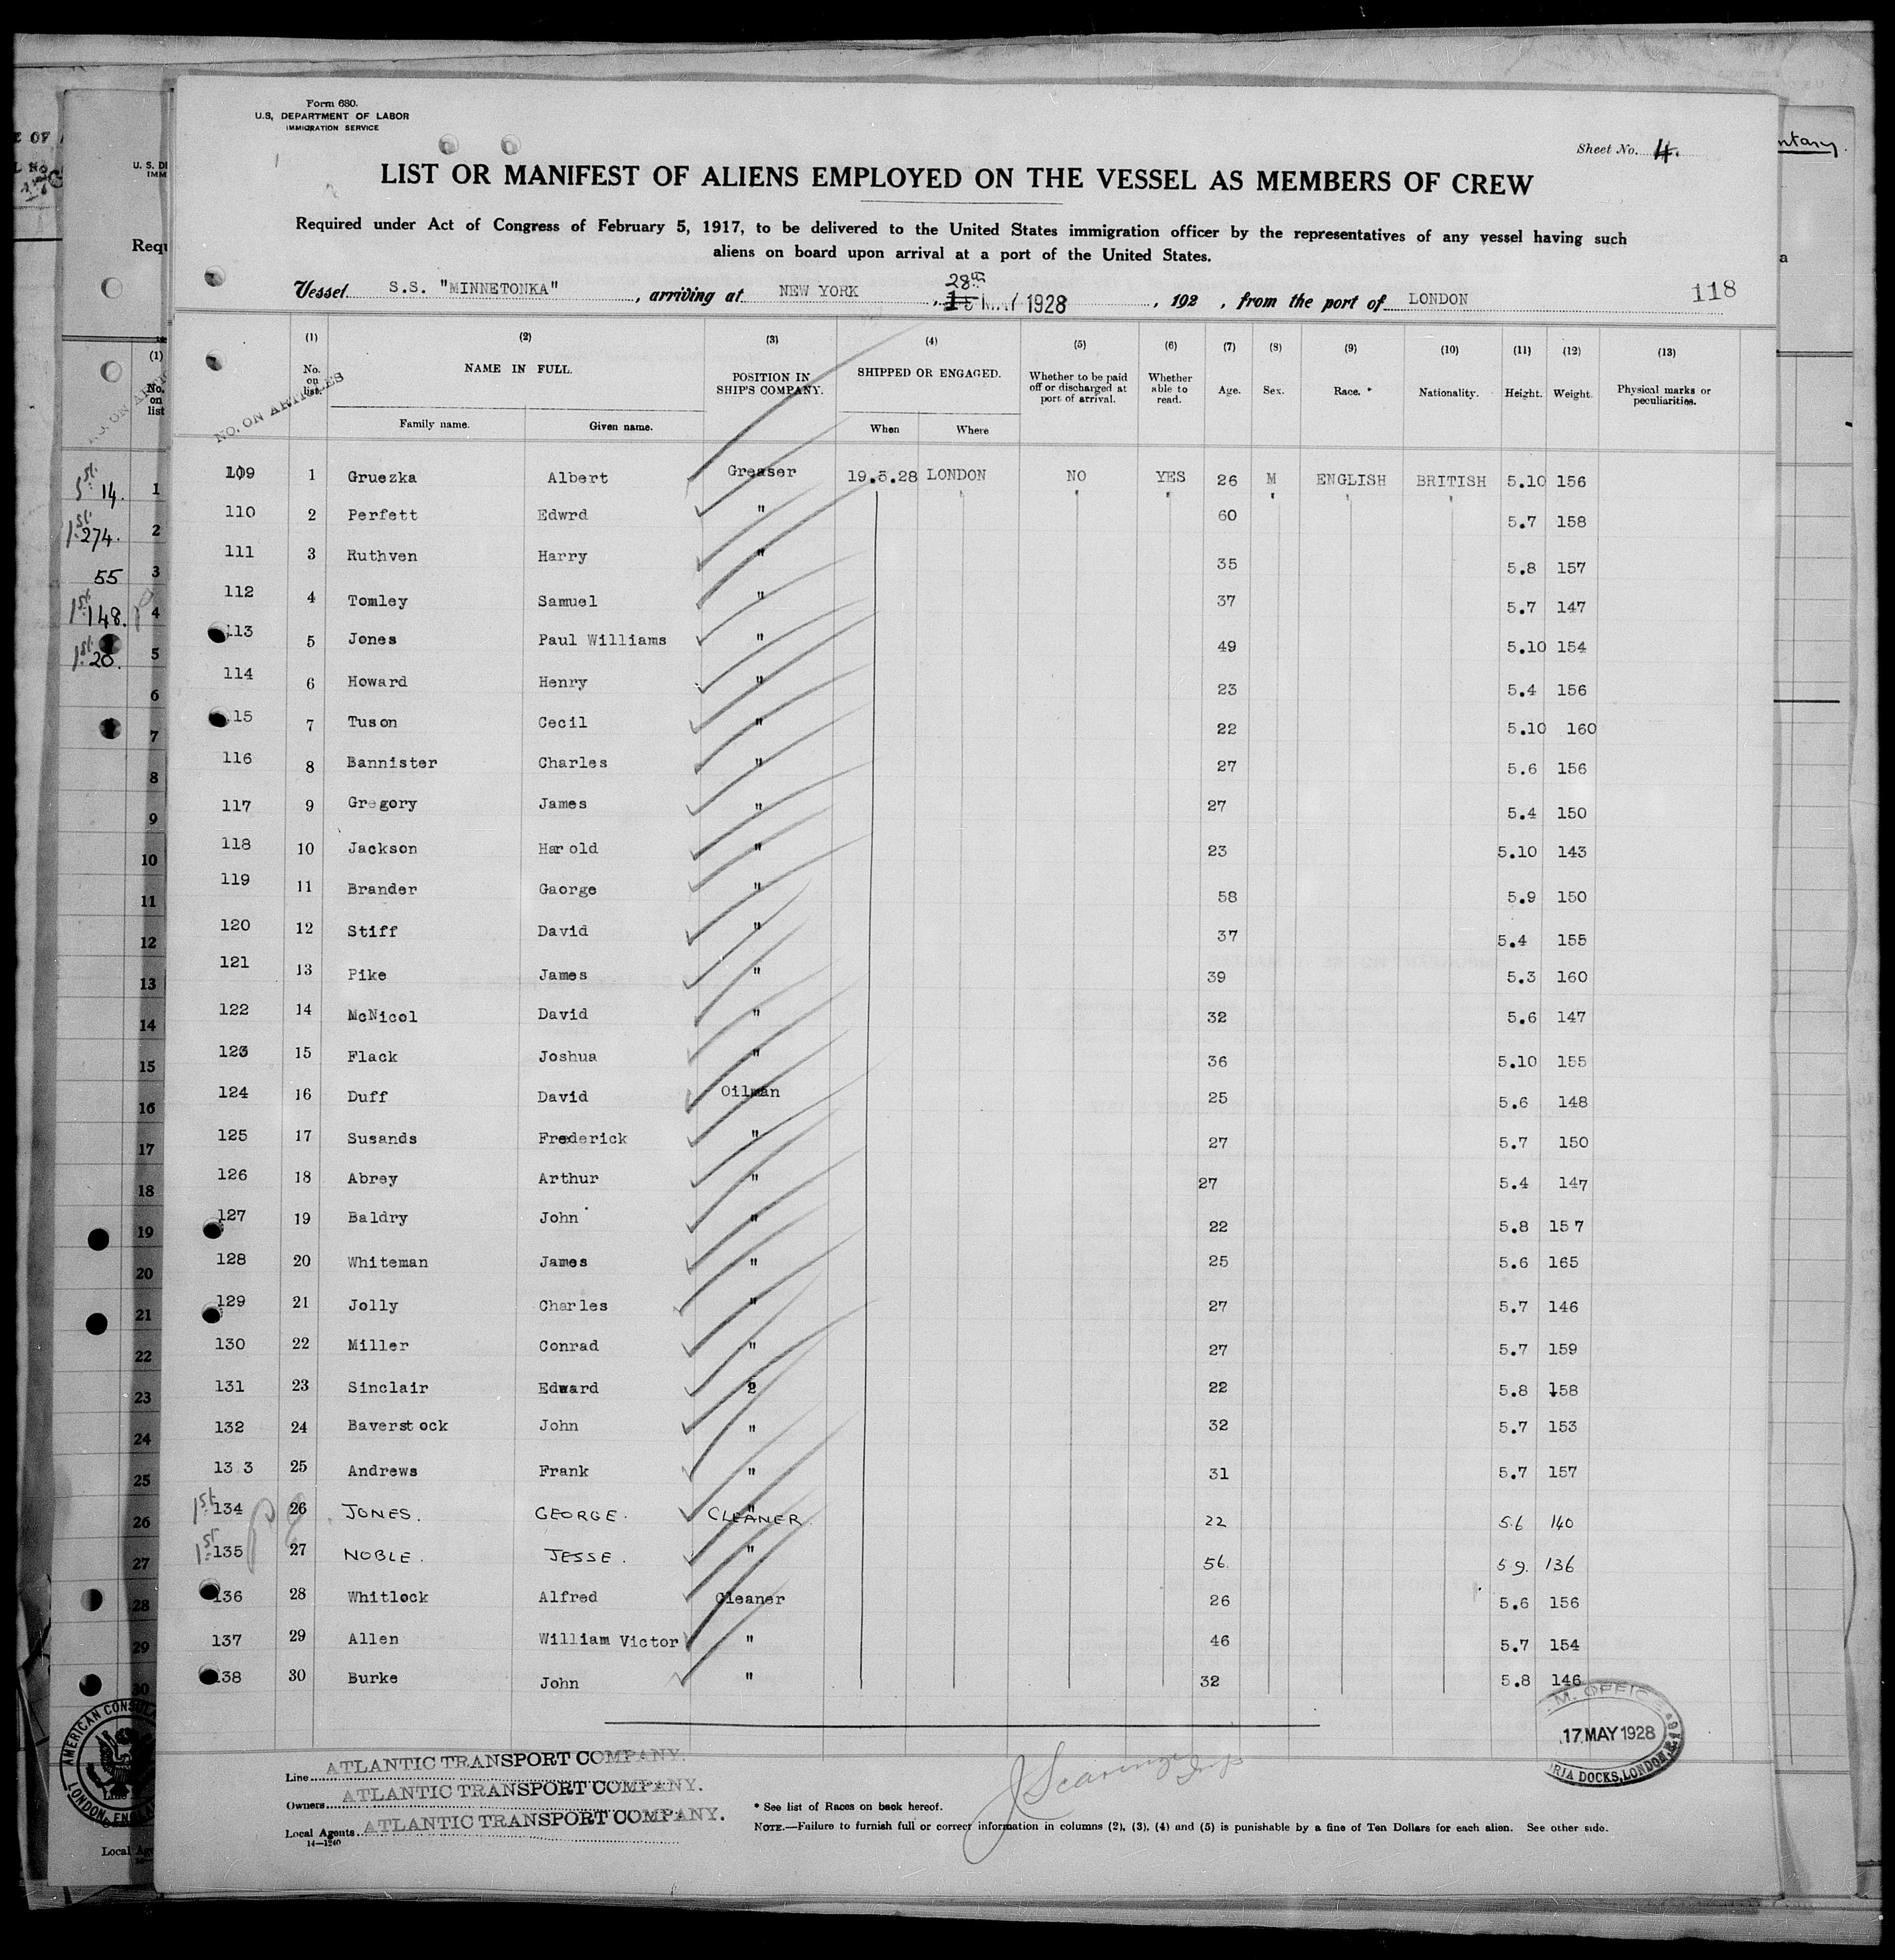 Form 680.
U.S. DEPARTMENT OF LABOR
IMMIGRATION SERVICE
Sheet No. 4.
LIST OR MANIFEST OF ALIENS EMPLOYED ON THE VESSEL AS MEMBERS OF CREW
Required under Act of Congress of February 5, 1917, to be delivered to the United States immigration officer by the representatives of any vessel having such
aliens on board upon arrival at a port of the United States.
28th
Vessel S.S. "MINNETONKA", arriving at NEW YORK, MAY 1928, 192 , from the port of LONDON 118
(1) (2) (3) (4) (5) (6) (7) (8) (9) (10) (11) (12) (13)
NO. ON ARTICLES No. on list. NAME IN FULL. POSITION IN SHIP'S COMPANY. SHIPPED OR ENGAGED. Whether to be paid off or discharged at port of arrival. Whether able to read. Age. Sex. Race.* Nationality. Height. Weight. Physical marks or peculiarities.
Family name. Given name. When Where
109 1 Gruezka Albert Greaser 19.5.28 LONDON NO YES 26 M ENGLISH BRITISH 5.10 156
110 2 Perfett Edwrd " " " " " 60 " " " 5.7 158
111 3 Ruthven Harry " 35 5.8 157
112 4 Tomley Samuel " 37 5.7 147
113 5 Jones Paul Williams " 49 5.10 154
114 6 Howard Henry " 23 5.4 156
115 7 Tuson Cecil " 22 5.10 160
116 8 Bannister Charles " 27 5.6 156
117 9 Gregory James " 27 5.4 150
118 10 Jackson Harold " 23 5.10 143
119 11 Brander Gaorge " 58 5.9 150
120 12 Stiff David " 37 5.4 155
121 13 Pike James " 39 5.3 160
122 14 McNicol David " 32 5.6 147
123 15 Flack Joshua " 36 5.10 155
124 16 Duff David Oilman 25 5.6 148
125 17 Susands Frederick " 27 5.7 150
126 18 Abrey Arthur " 27 5.4 147
127 19 Baldry John " 22 5.8 157
128 20 Whiteman James " 25 5.6 165
129 21 Jolly Charles " 27 5.7 146
130 22 Miller Conrad " 27 5.7 159
131 23 Sinclair Edward 2 22 5.8 158
132 24 Baverstock John " 32 5.7 153
133 25 Andrews Frank " 31 5.7 157
1st 134 26 JONES. GEORGE. " CLEANER. 22 5.6 140
1st 135 27 NOBLE. JESSE. " 56. 5 9. 136
136 28 Whitlock Alfred Cleaner 26 5.6 156
137 29 Allen William Victor " 46 5.7 154
138 30 Burke John " 32 5.8 146
17 MAY 1928
RIA DOCKS, LONDON, E.
Line ATLANTIC TRANSPORT COMPANY.
Owners ATLANTIC TRANSPORT COMPANY.
Local Agents ATLANTIC TRANSPORT COMPANY.
14—1240
* See list of Races on back hereof.
NOTE.—Failure to furnish full or correct information in columns (2), (3), (4) and (5) is punishable by a fine of Ten Dollars for each alien. See other side.
(1)
No. on list
1st 14. 1
1st 274. 2
55 3
1st 148. 4
1st 20. 5
6
7
8
9
10
11
12
13
14
15
16
17
18
19
20
21
22
23
24
25
26
27
28
29
30
AMERICAN CONSULA
LONDON, ENGLA
Local Age